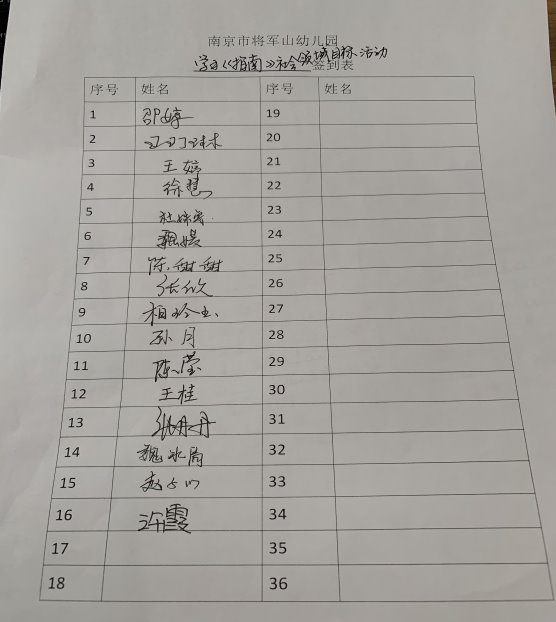 南京市将军山幼儿园
学习《指南》社会领域目标活动签到表
序号 姓名 序号 姓名
1 邵婷 19
2 20
3 王婷 21
4 徐慧 22
5 23
6 魏媛 24
7 陈甜甜 25
8 张欣 26
9 相玲玉 27
10 孙月 28
11 陈莹 29
12 王桂 30
13 张丹丹 31
14 魏冰倩 32
15 33
16 许霞 34
17 35
18 36